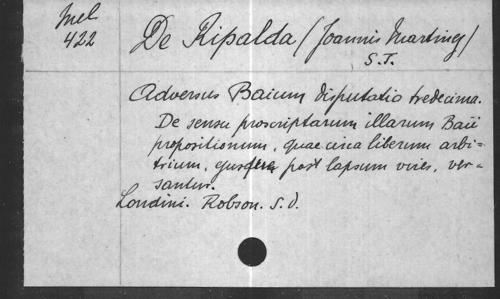 Mel
422
De Ripalda (Joannis Martinez)
S.J.
Adversus Baium disputatio tredecima.
De sensu proscriptarum illarum Baii
propositionum, quae circa liberum arbi=
trium, ejusque post lapsum vires, ver=
santur.
Londini. Robson. S.d.